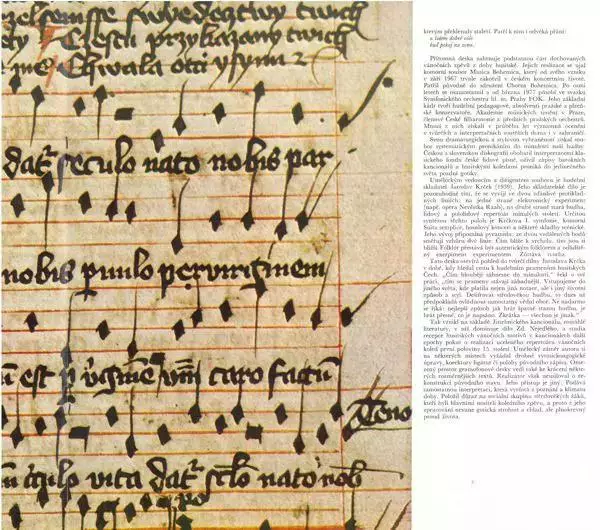 zelsensse swedecztwy twich
Czestu przykazany twich
Chwala otci y synu z
dat seculo nato nobis par
nobis puulo per virginem
caro factum
Teno
vita dat seclo nato nob
kterým překlenuly staletí. Patří k nim i odvěká přání:
a lidem dobré vůle
buď pokoj na zemi.
Přítomná deska zahrnuje podstatnou část dochovaných
vánočních zpěvů z doby husitské. Jejich realizace se ujal
komorní soubor Musica Bohemica, který od svého vzniku
v září 1967 trvale zakotvil v českém koncertním životě.
Patřil původně do sdružení Chorea Bohemica. Po osmi
letech se osamostatnil a od března 1977 působí ve svazku
Symfonického orchestru hl. m. Prahy FOK. Jeho základní
kádr tvoří hudební pedagogové, absolventi pražské a plzeň-
ské konzervatoře, Akademie múzických umění v Praze,
členové České filharmonie a předních pražských orchestrů.
Mnozí z nich získali v průběhu let významná ocenění
v tvůrčích a interpretačních soutěžích doma i v zahraničí.
Svou dramaturgickou a stylovou vyhraněností získal sou-
bor systematickým pronikáním do minulosti naší hudby.
Českou a slovenskou diskografii obohatil interpretací kla-
sického fondu české lidové písně, oživil zápisy barokních
kancionálů a husitskými koledami proniká do jedinečného
světa pozdní gotiky.
Uměleckým vedoucím a dirigentem souboru je hudební
skladatel Jaroslav Krček (1939). Jeho skladatelské dílo je
pozoruhodné tím, že se vyvíjí ve dvou zdánlivě protiklad-
ných liniích: na jedné straně elektronický experiment
(např. opera Nevěstka Raab), na druhé straně stará hudba,
lidový a pololidový repertoár minulých století. Určitou
syntézou těchto poloh je Krčkova I. symfonie, koncertní
Suita semplice, houslový koncert a některé skladby scénické.
Jeho vývoj připomíná pyramidu: ze dvou vzdálených bodů
směřují vzhůru dvě linie. Čím blíže k vrcholu, tím jsou si
bližší. Folklór přestává být autentickým folklórem a odlidště-
ný experiment experimentem. Zůstává tvorba.
Tato deska otevírá pohled do tvůrčí dílny Jaroslava Krčka
v době, kdy hledal cestu k hudebním pramenům husitských
Čech. „Čím hlouběji sáhneme do minulosti," řekl o své
práci, „tím se prameny stávají záhadnější. Vstupujeme do
jiného světa, kde platila nejen jiná notace, ale i jiný životní
způsob a styl. Dešifrovat středověkou hudbu, to dnes už
předpokládá ovládnout samostatný vědní obor. Ne nadarmo
se říká: nejlepší způsob jak hrát špatně starou hudbu, je
hrát přesně, co je napsáno. Zkrátka — všechno je jinak."
Tak vznikl na základě Jistebnického kancionálu, rozsáhlé
literatury, v níž dominuje dílo Zd. Nejedlého, a studia
recepce husitských vánočních motivů v kancionálech další
epochy pokus o realizaci uceleného repertoáru vánočních
koled první poloviny 15. století. Umělecký záměr autora si
na některých místech vyžádal drobné versologické
úpravy, korektury ligatur či polohy původního zápisu. Ome-
zený prostor gramofonové desky vedl také ke krácení někte-
rých rozměrnějších textů. Realizátor však neusiloval o re-
konstrukci původního stavu. Jeho přístup je jiný. Podává
samostatnou interpretaci, která vyvěrá z poznání a klimatu
doby. Položil důraz na sociální skupinu středověkých žáků,
kteří byli hlavními nositeli koledního zpěvu, a proto z jeho
zpracování nevane gotická strohost a chlad, ale plnokrevný
proud života.